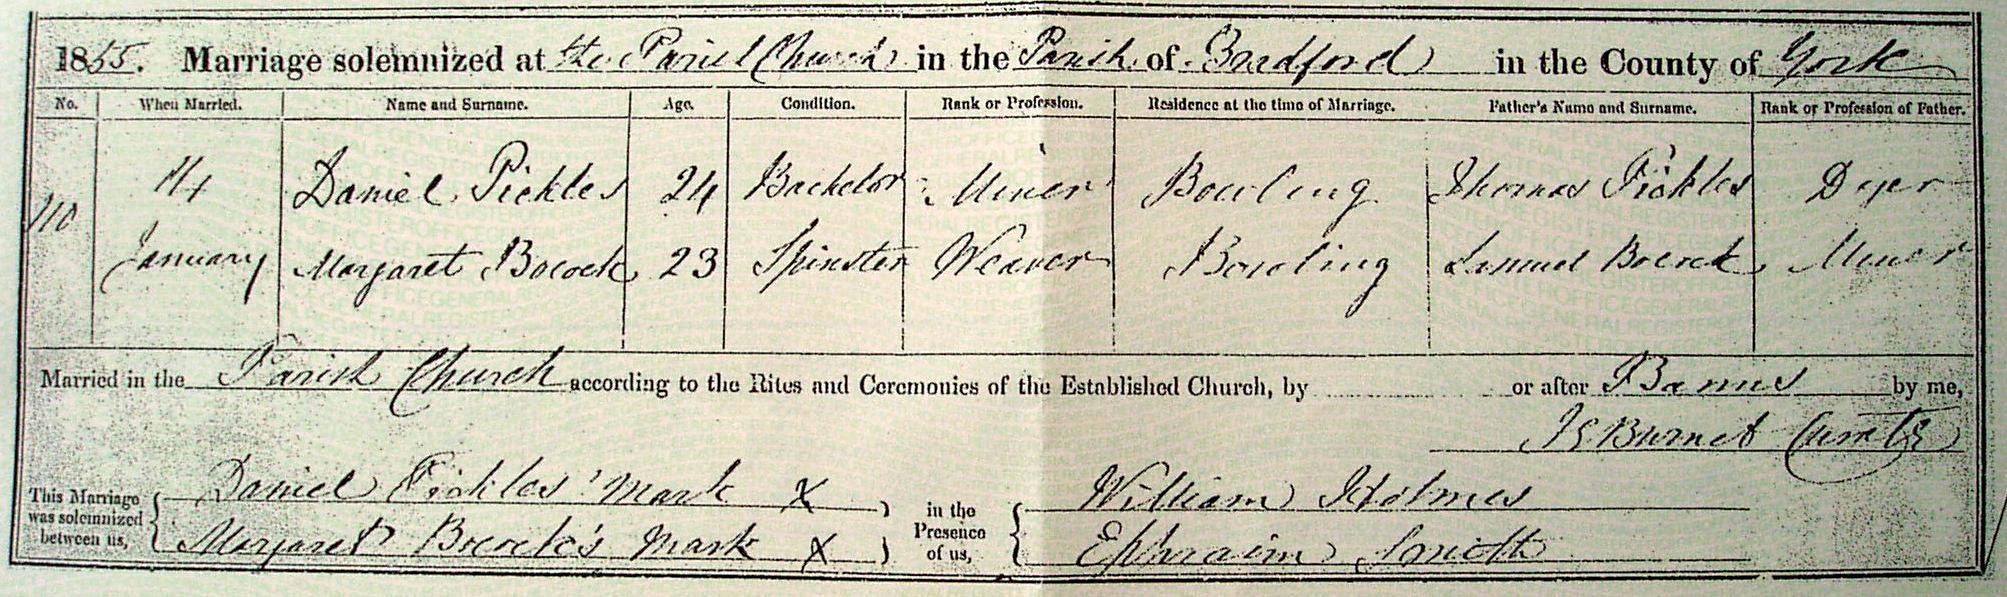 1855. Marriage solemnized at the Parish Church in the Parish of Bradford in the County of York
No. When Married. Name and Surname. Age. Condition. Rank or Profession. Residence at the time of Marriage. Father's Name and Surname. Rank or Profession of Father.
110 14 Daniel Pickles 24 Bachelor Miner Bowling Thomas Pickles Dyer
January Margaret Bocock 23 Spinster Weaver Bowling Samuel Bocock Miner
Married in the Parish Church according to the Rites and Ceremonies of the Established Church, by or after Banns by me,
Burnet Curate
This Marriage was solemnized between us, Daniel Pickles' mark X in the Presence of us, William Holmes
Margaret Bocock's mark X Ephraim Smith